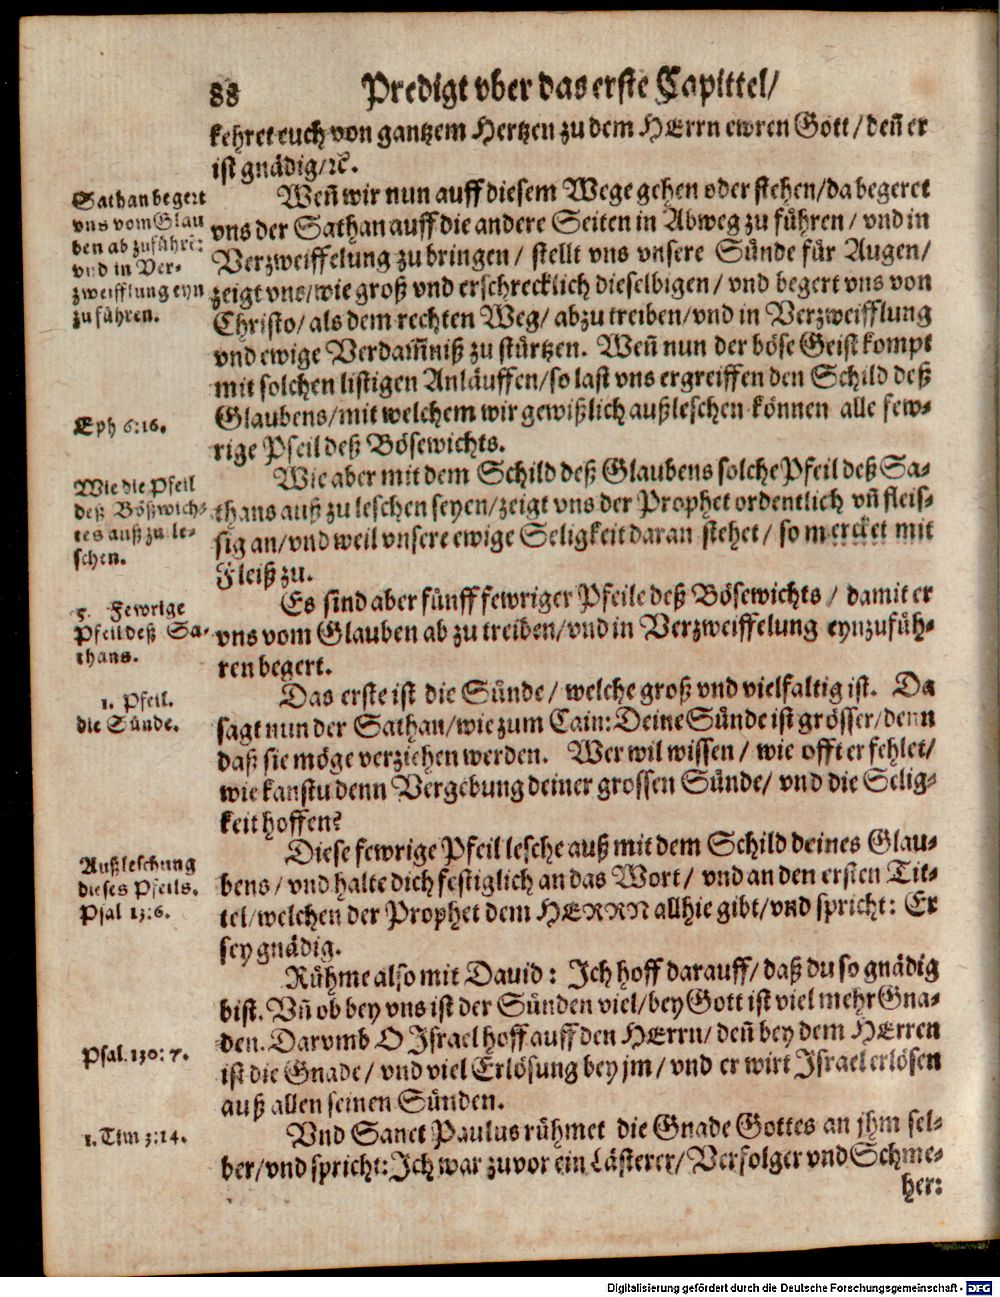 88 Predigt vber das erste Capittel/
kehret euch von gantzem Hertzen zu dem HErrn ewren Gott/ deñ er
ist gnädig/ ꝛc.
Sathan begert
vns vom Glau
ben ab zuführẽ:
vnd in Ver-
zweifflung eyn
zu führen.
Weñ wir nun auff diesem Wege gehen oder stehen/ da begeret
vns der Sathan auff die andere Seiten in Abweg zu führen/ vnd in
Verzweiffelung zu bringen/ stellt vns vnsere Sünde für Augen/
zeigt vns/ wie groß vnd erschrecklich dieselbigen/ vnd begert vns von
Christo/ als dem rechten Weg/ abzu treiben/ vnd in Verzweifflung
vnd ewige Verdam̃niß zu stürtzen. Weñ nun der böse Geist kompt
mit solchen listigen Anläuffen/ so last vns ergreiffen den Schild deß
Eph 6:16.
Glaubens/ mit welchem wir gewißlich außleschen können alle few-
rige Pfeil deß Bösewichts.
Wie die Pfeil
deß Bößwich-
tes auß zu le-
schen.
Wie aber mit dem Schild deß Glaubens solche Pfeil deß Sa-
thans auß zu leschen seyen/ zeigt vns der Prophet ordentlich vñ fleis-
sig an/ vnd weil vnsere ewige Seligkeit daran stehet/ so mercket mit
Fleiß zu.
5. Fewrige
Pfeil deß Sa-
thans.
Es sind aber fünff fewriger Pfeile deß Bösewichts/ damit er
vns vom Glauben ab zu treiben/ vnd in Verzweiffelung eynzufüh-
ren begert.
1. Pfeil.
die Sünde.
Das erste ist die Sünde/ welche groß vnd vielfaltig ist. Da
sagt nun der Sathan/ wie zum Cain: Deine Sünde ist grösser/ denn
daß sie möge verziehen werden. Wer wil wissen/ wie offt er fehlet/
wie kanstu denn Vergebung deiner grossen Sünde/ vnd die Selig-
keit hoffen?
Außleschung
dieses Pfeils.
Psal 13:6.
Diese fewrige Pfeil lesche auß mit dem Schild deines Glau-
bens/ vnd halte dich festiglich an das Wort/ vnd an den ersten Tit-
tel/ welchen der Prophet dem HERRN allhie gibt/ vnd spricht: Er
sey gnädig.
Rühme also mit Dauid: Ich hoff darauff/ daß du so gnädig
bist. Vñ ob bey vns ist der Sünden viel/ bey Gott ist viel mehr Gna-
den. Darvmb O Israel hoff auff den HErrn/ deñ bey dem HErren
Psal. 130: 7.
ist die Gnade/ vnd viel Erlösung bey jm/ vnd er wirt Israel erlösen
auß allen seinen Sünden.
1. Tim 3:14.
Vnd Sanct Paulus rühmet die Gnade Gottes an jhm sel-
ber/ vnd spricht: Ich war zuvor ein Lästerer/ Verfolger vnd Schme-
her:
Digitalisierung gefördert durch die Deutsche Forschungsgemeinschaft - DFG